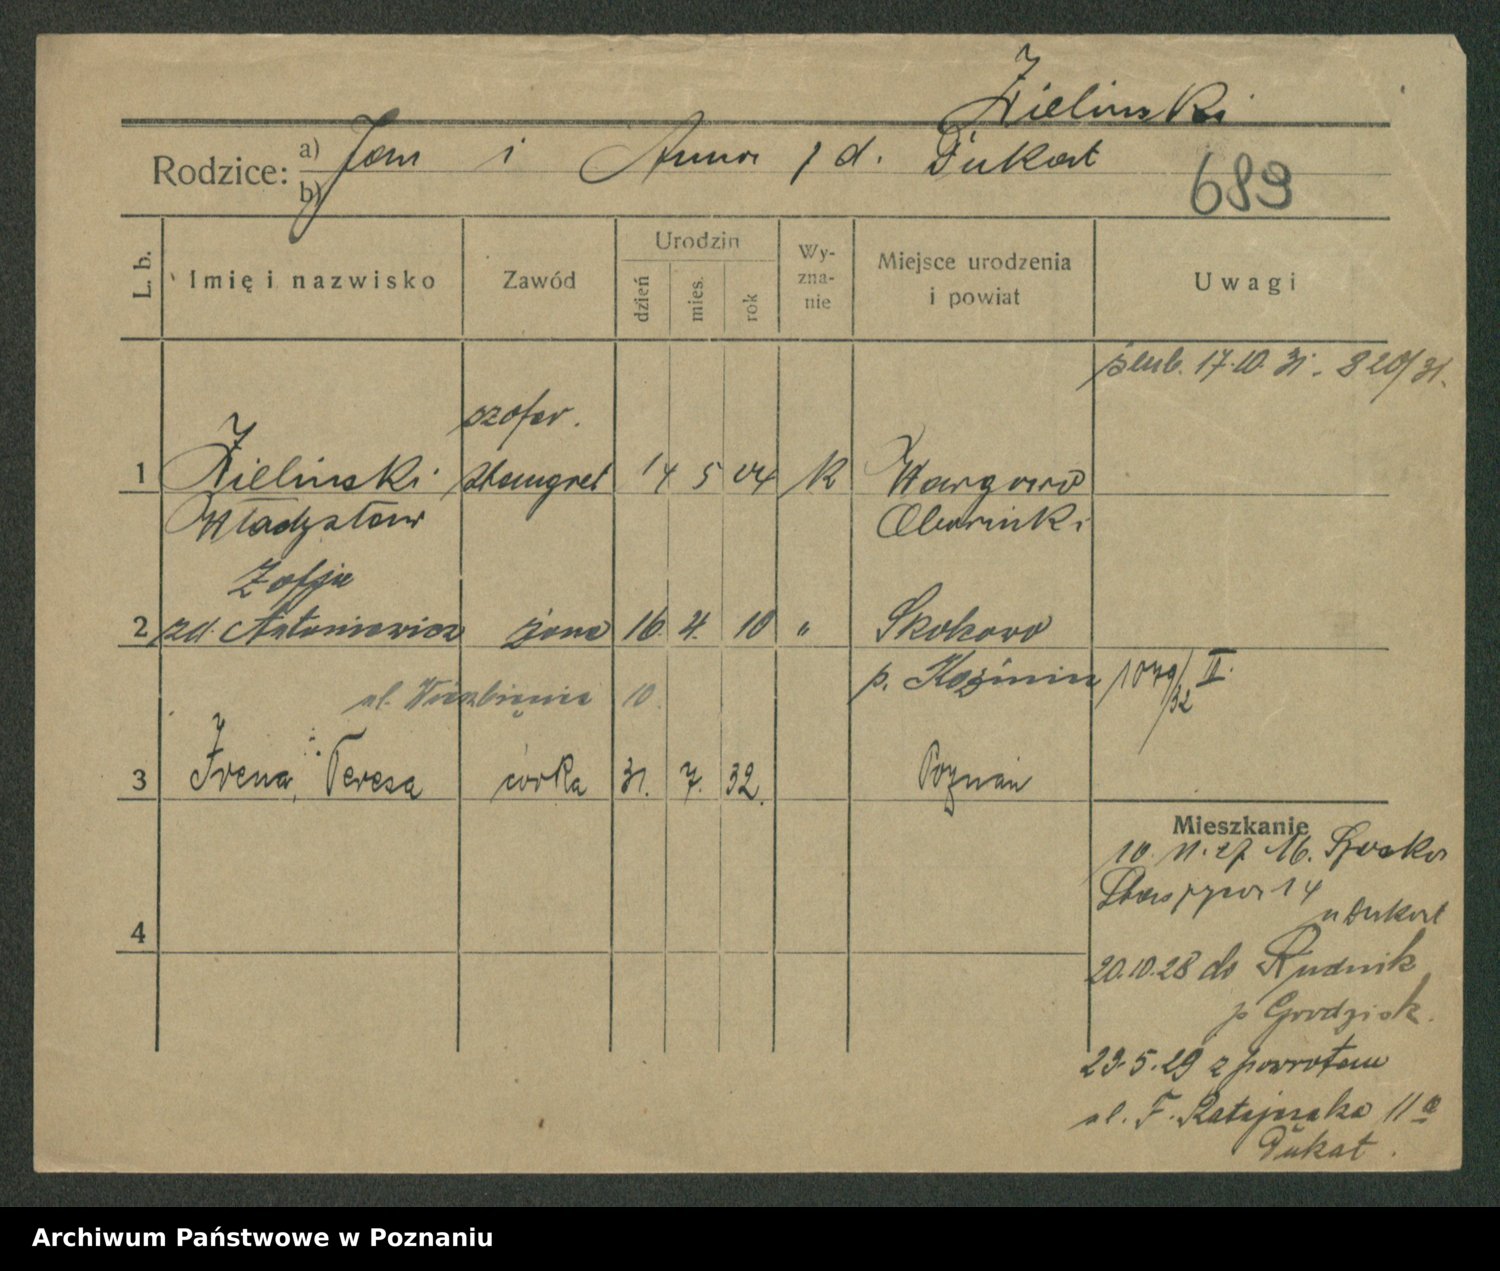 Zieliński
Rodzice: a) Jan i Anna z d. Dukat
b)
689
L. b.
Imię i nazwisko
Zawód
Urodzin
dzień
mies.
rok
Wy-
zna-
nie
Miejsce urodzenia
i powiat
Uwagi
ślub. 17.10.31. 820/31.
szofer.
1 Zieliński 14 5 04 k Wargowo
Władysław Obornicki
Zofja
2 zd. Antoniewicz żona 16 4. 10 " Skokowo
p. Koźmin 1079/32 II.
ul. Wierzbięcice 10.
3 Irena, Teresa córka 31. 7. 32. Poznań
Mieszkanie
10. 11. 27 16.
14
u Dukat
4
20.10.28 do Rudnik
p Grodzisk.
29.5.29 z powrotem
ul. F. Ratajczaka 11a
Dukat.
Archiwum Państwowe w Poznaniu